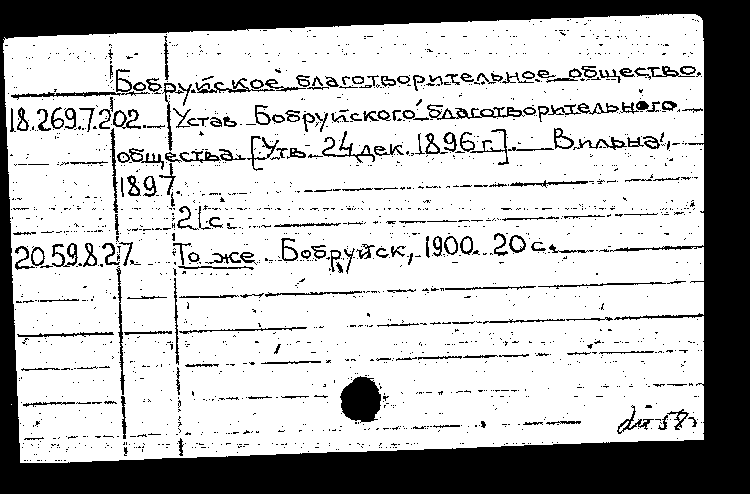 Бобруйское благотворительное общество.
18.269.7.202. Устав Бобруйского благотворительного
общества. [Утв. 24 дек. 1896 г.]. Вильна,
1897.
21 с.
20.59.8.27. То же. Бобруйск, 1900. 20 с.